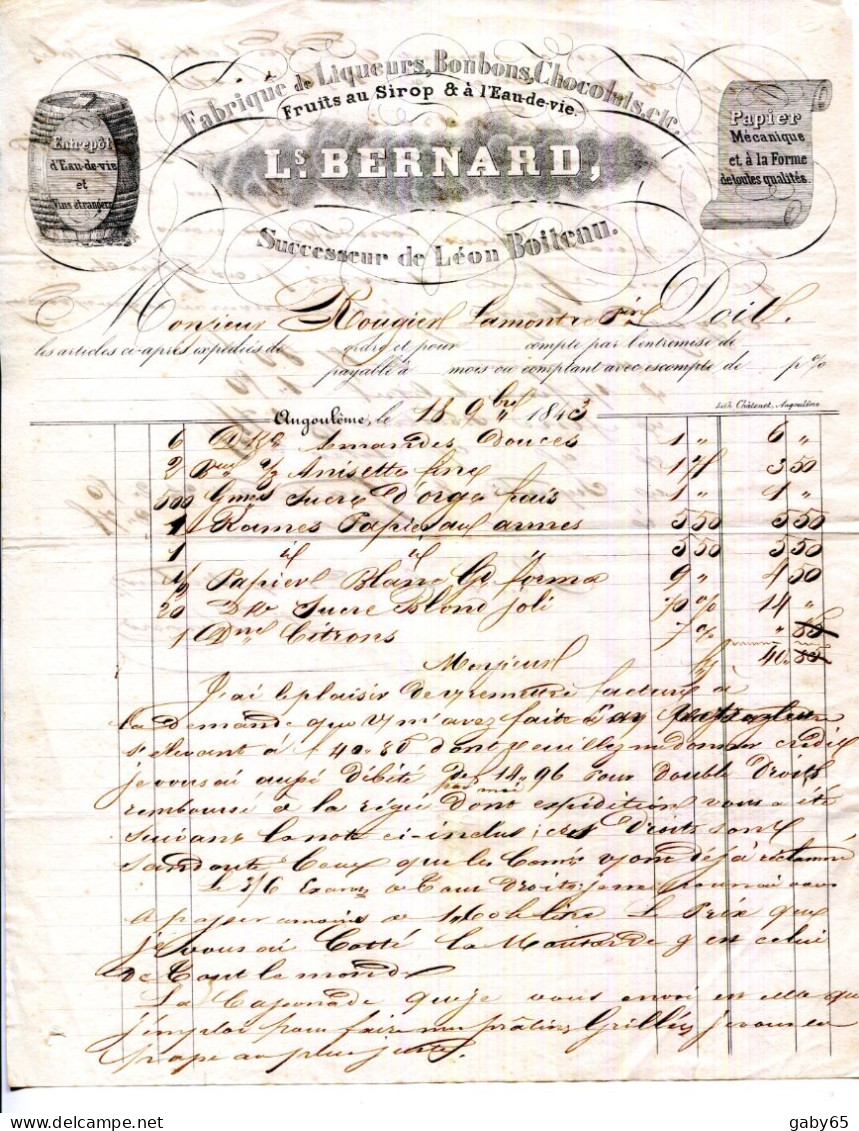 Fabrique de Liqueurs, Bonbons, Chocolats, etc.
Fruits au Sirop & à l'Eau-de-vie.
Ls. BERNARD,
Successeur de Léon Boiteau.
Entrepôt
d'Eau-de-vie
et
Vins étrangers
Papier
Mécanique
et à la Forme
de toutes qualités.
Monsieur Rougier Lamontre Doit
les articles ci-après expédiés de ordre et pour compte par l'entremise de
payable à mois ou comptant avec escompte de p%
Lith. Châtenet, Angoulême
Angoulême, le 18 9bre 1843
6 Amandes Douces 1 " 6 "
2 Anisette fine 1 75 3 50
500 Gmes Sucre D'orge frais 1 " 1 "
1 Rames Papier aux armes 5 50 5 50
1 id id 5 50 5 50
1/2 Papier Blanc Gd forme 9 " 4 50
20 Sucre Blond joli 70 % 14 "
1 Citrons 7 % " 50
Monsieur 40.
J'ai le plaisir De remettre facture à
la Demande que m'avez faite
s'elevant à f 40.80 dont veuillez me donner crédit
je vous ai aussi Débité De f 14.96 Pour Double Droits
par moi
remboursé à la régie Dont expédition vous a été
suivant la note ci-inclus ; ces Droits sont
sandoute Ceux que les vont déjà réclamé
le 3/6 Droits je ne pourrai vous
à moins de Le Prix que
je vous ai Cotté la Moutarde est celui
De Tout le monde
La Caponade que je vous envoi est elle que
j'emploi pour faire mes pralines Grillées je vous en
au plus juste.
gaby65